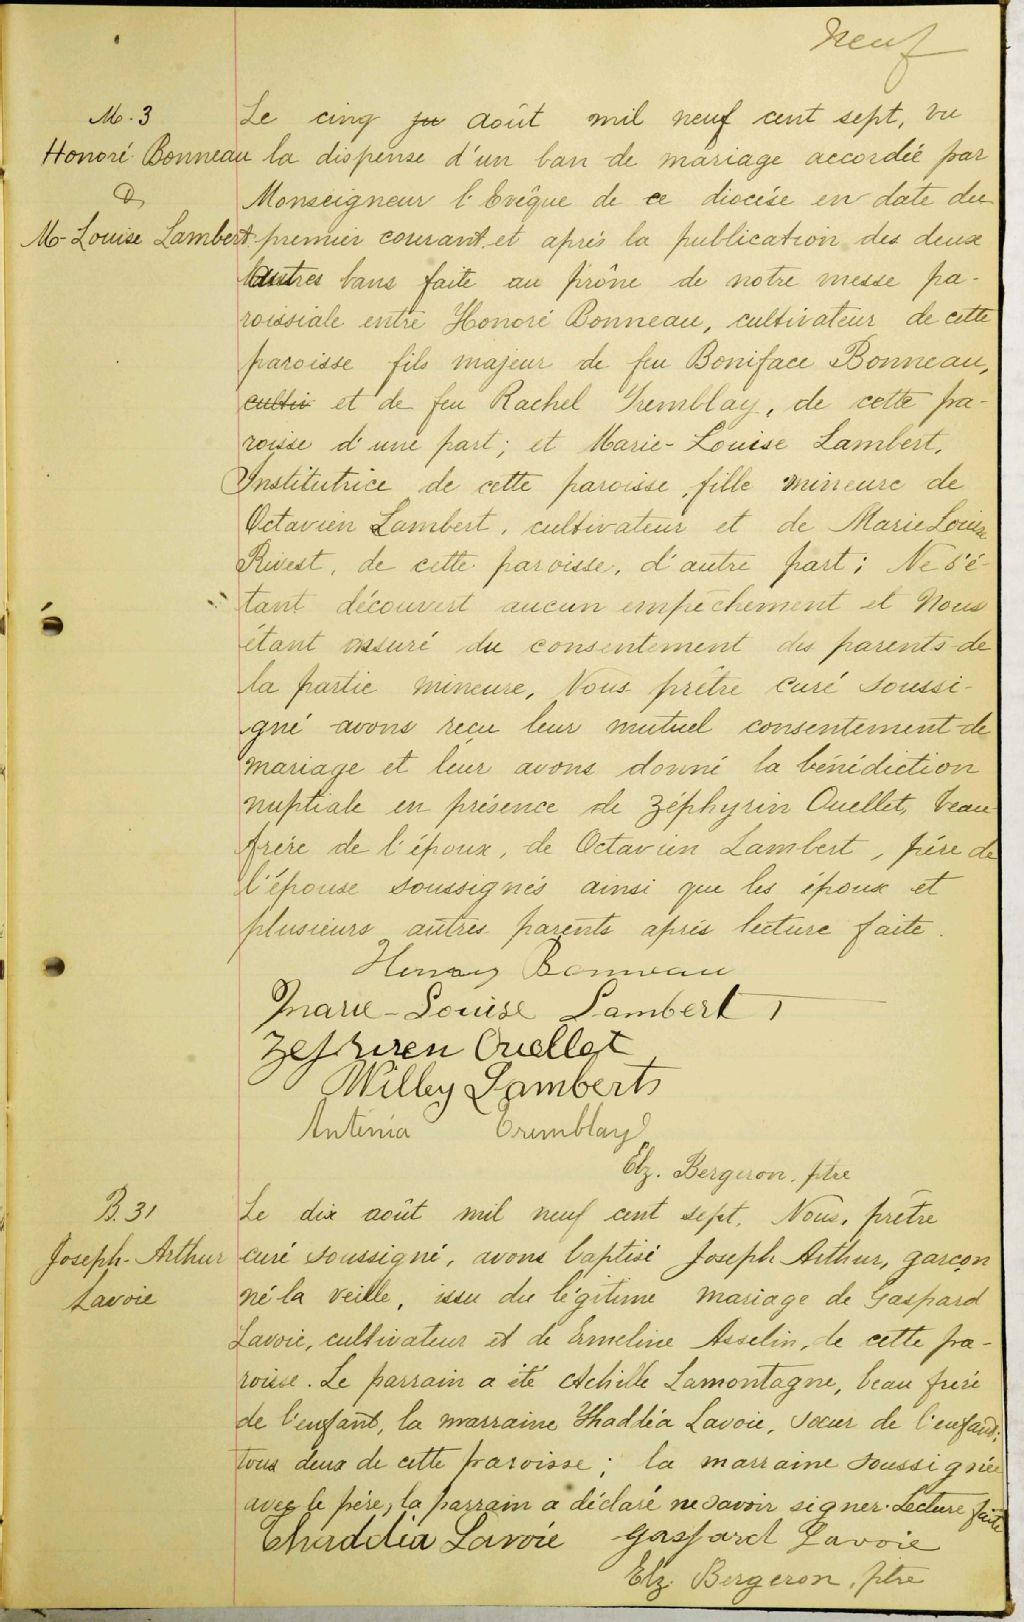 Neuf
M. 3
Honoré Bonneau
&
M-Louise Lambert
Le cinq ju août mil neuf cent sept, vu
la dispense d'un ban de mariage accordée par
Monseigneur l'Evêque de ce diocèse en date du
premier courant et après la publication des deux
autres bans faite au prône de notre messe pa-
roissiale entre Honoré Bonneau, cultivateur de cette
paroisse fils majeur de feu Boniface Bonneau,
cultiv et de feu Rachel Tremblay, de cette pa-
roisse d'une part; et Marie-Louise Lambert,
Institutrice de cette paroisse, fille mineure de
Octavien Lambert, cultivateur et de Marie Louise
Rivest, de cette paroisse, d'autre part; Ne s'é-
tant découvert aucun empêchement et Nous
étant assuré du consentement des parents de
la partie mineure, Nous prêtre curé soussi-
gné avons reçu leur mutuel consentement de
mariage et leur avons donné la bénédiction
nuptiale en présence de Zéphyrin Ouellet, beau
frère de l'époux, de Octavien Lambert, père de
l'épouse soussignés ainsi que les époux et
plusieurs autres parents après lecture faite.
Henry Bonneau
Marie-Louise Lambert
Zefiren Ouellet
Willey Lamberts
Antinia Tremblay
Elz. Bergeron, ptre
B. 31
Joseph-Arthur
Lavoie
Le dix août mil neuf cent sept, Nous, prêtre
curé soussigné, avons baptisé Joseph Arthur, garçon
né la veille, issu du légitime mariage de Gaspard
Lavoie, cultivateur et de Ermeline Asselin, de cette pa-
roisse. Le parrain a été Achille Lamontagne, beau frère
de l'enfant, la marraine Thadléa Lavoie, sœur de l'enfant;
tous deux de cette paroisse; la marraine soussignée
avec le père, la parrain a déclaré ne savoir signer. Lecture faite
Thaddia Lavoie Gaspard Lavoie
Elz. Bergeron, ptre